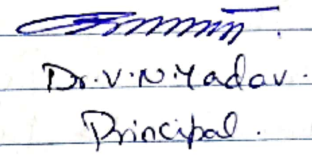 Dr. V. N. Yadav.
Principal.